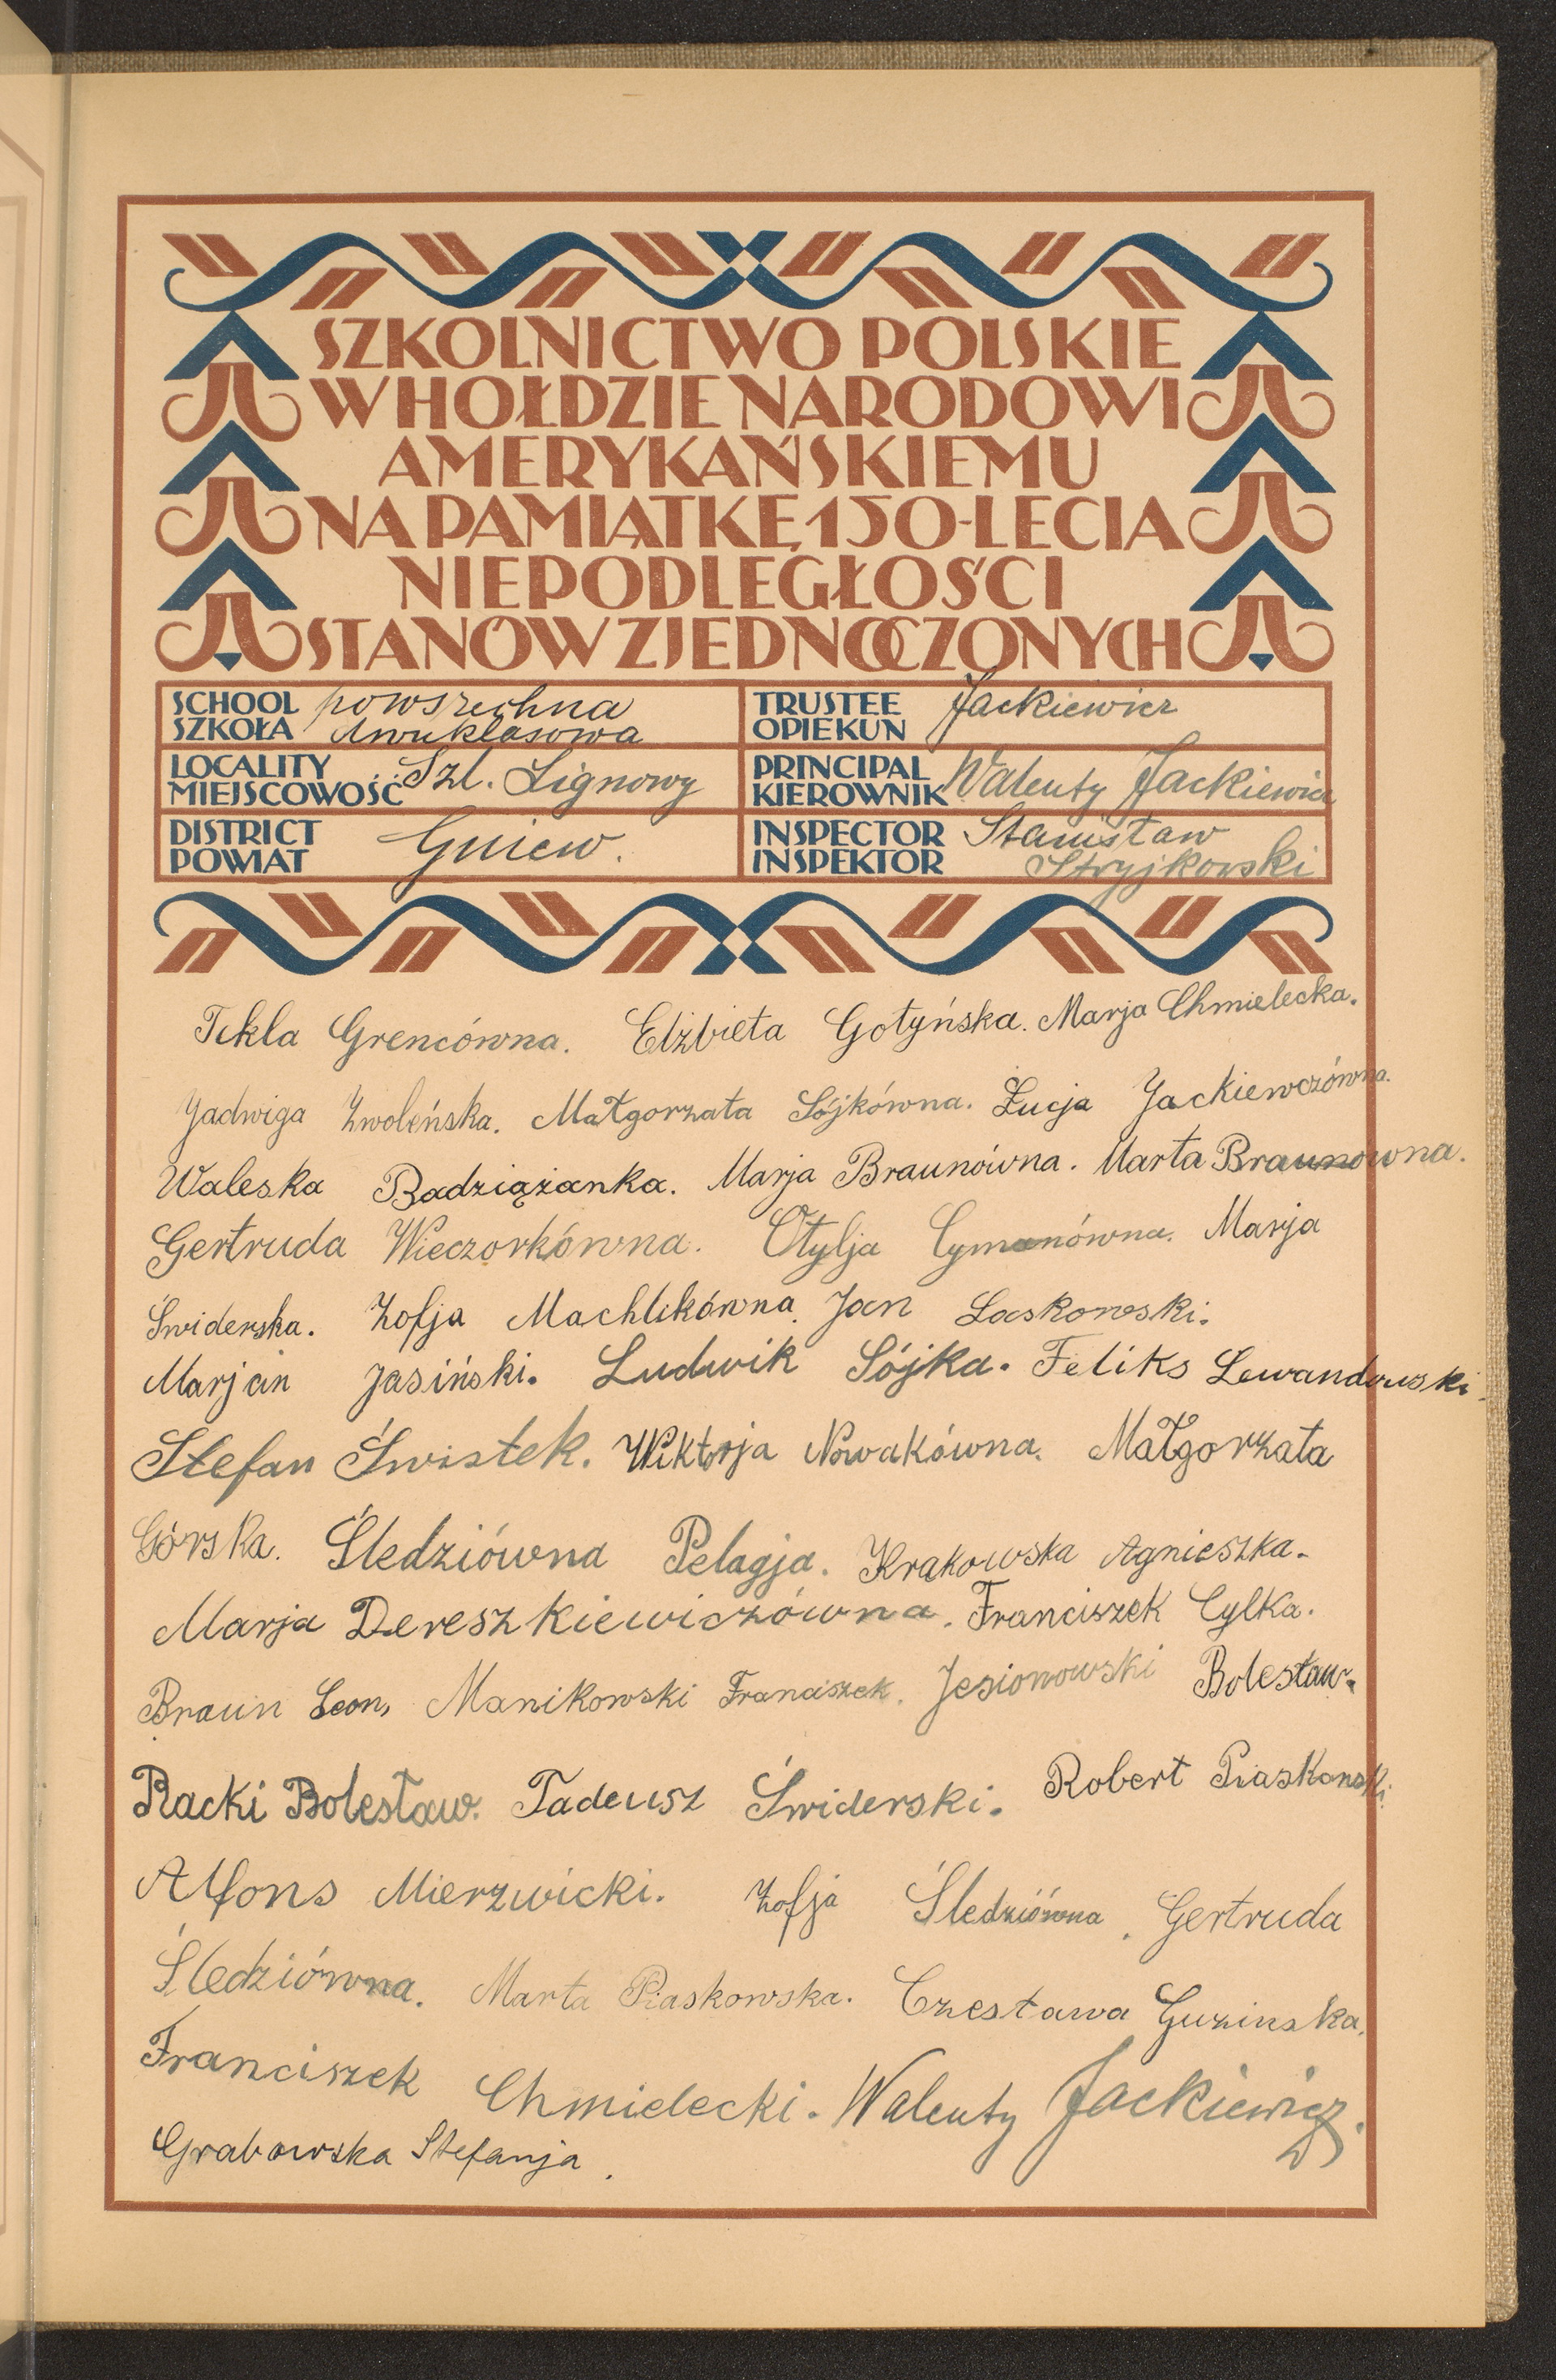 SZKOLNICTWO POLSKIE
W HOŁDZIE NARODOWI
AMERYKAŃSKIEMU
NA PAMIĄTKĘ 150-LECIA
NIEPODLEGŁOŚCI
STANÓW ZJEDNOCZONYCH
SCHOOL SZKOŁA powszechna dwuklasowa
TRUSTEE OPIEKUN Jackiewicz
LOCALITY MIEJSCOWOŚĆ Szl. Lignowy
PRINCIPAL KIEROWNIK Walenty Jackiewicz
DISTRICT POWIAT Gniew.
INSPECTOR INSPEKTOR Stanisław Stryjkowski
Tekla Grencówna. Elżbieta Gotyńska. Marja Chmielecka.
Jadwiga Zwoleńska. Małgorzata Sójkówna. Łucja Jackiewczówna.
Waleska Badziążanka. Marja Braunówna. Marta Braunowna.
Gertruda Wieczorkówna. Otylja Cymanówna. Marja
Świderska. Zofja Machlikówna. Jan Laskowski.
Marjan Jasiński. Ludwik Sójka. Feliks Lewandowski.
Stefan Świstek. Wiktorja Nowakówna. Małgorzata
Górska. Śledziówna Pelagja. Krakowska Agnieszka.
Marja Dereszkiewiczówna. Franciszek Cylka.
Braun Leon, Manikowski Franciszek. Jesionowski Bolesław.
Racki Bolesław. Tadeusz Świderski. Robert Piaskowski.
Alfons Mierzwicki. Zofja Śledziówna. Gertruda
Śledziówna. Marta Piaskowska. Czesława Guzinska.
Franciszek Chmielecki. Walenty Jackiewicz.
Grabowska Stefanja.